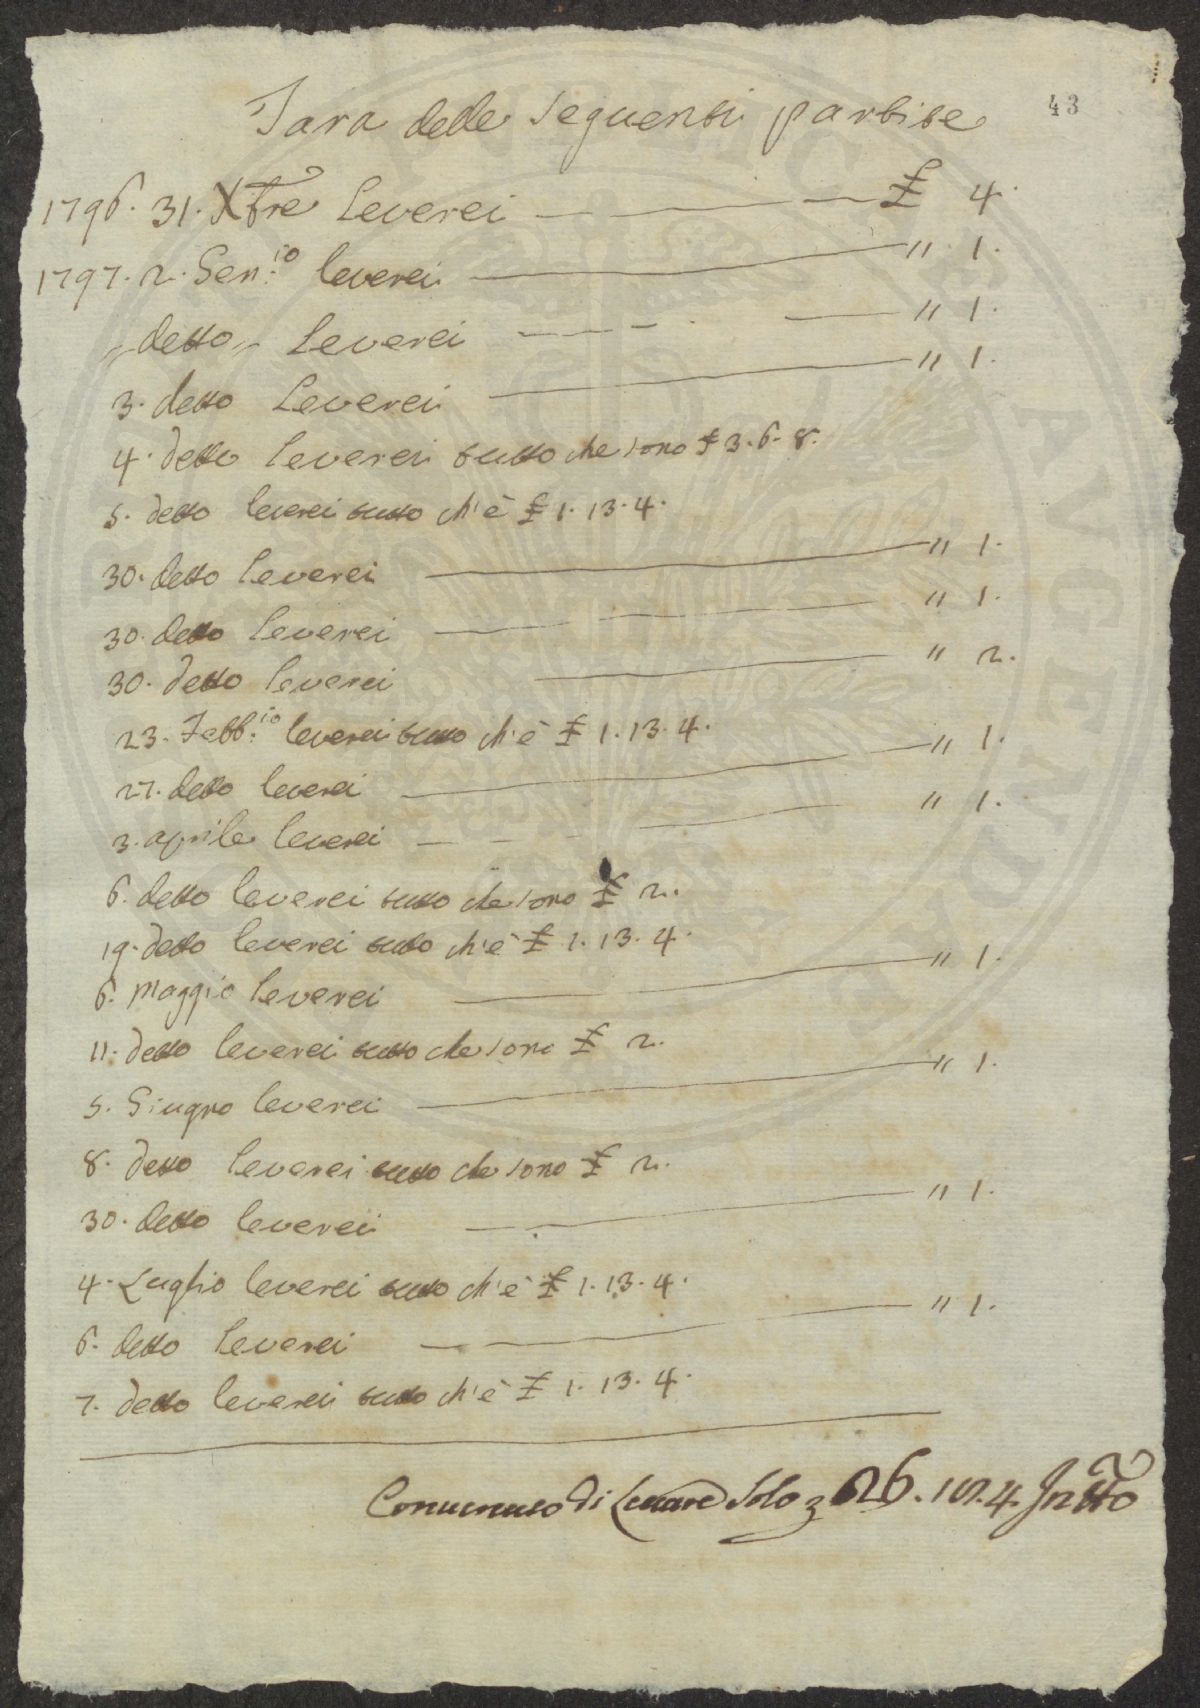 43
Tara delle seguenti partite
1796. 31. Xbre leverei £ 4.
1797. 2. Gen:io leverei " 1.
" detto " leverei " 1.
3. detto leverei " 1.
4. detto leverei tutto che sono £ 3. 6. 8.
5. detto leverei tutto ch'è £ 1. 13. 4.
30. detto leverei " 1.
30. detto leverei " 1.
30. detto leverei " 2.
23. Febb:io leverei tutto ch'è £ 1. 13. 4.
27. detto leverei " 1.
3. aprile leverei " 1.
6. detto leverei tutto che sono £ 2.
19. detto leverei tutto ch'è £ 1. 13. 4.
6. Maggio leverei " 1.
11. detto leverei tutto che sono £ 2.
5. Giugno leverei " 1.
8. detto leverei tutto che sono £ 2.
30. detto leverei " 1.
4. Luglio leverei tutto ch'è £ 1. 13. 4.
6. detto leverei " 1.
7. detto leverei tutto ch'è £ 1. 13. 4.
di Levare Solo 26.